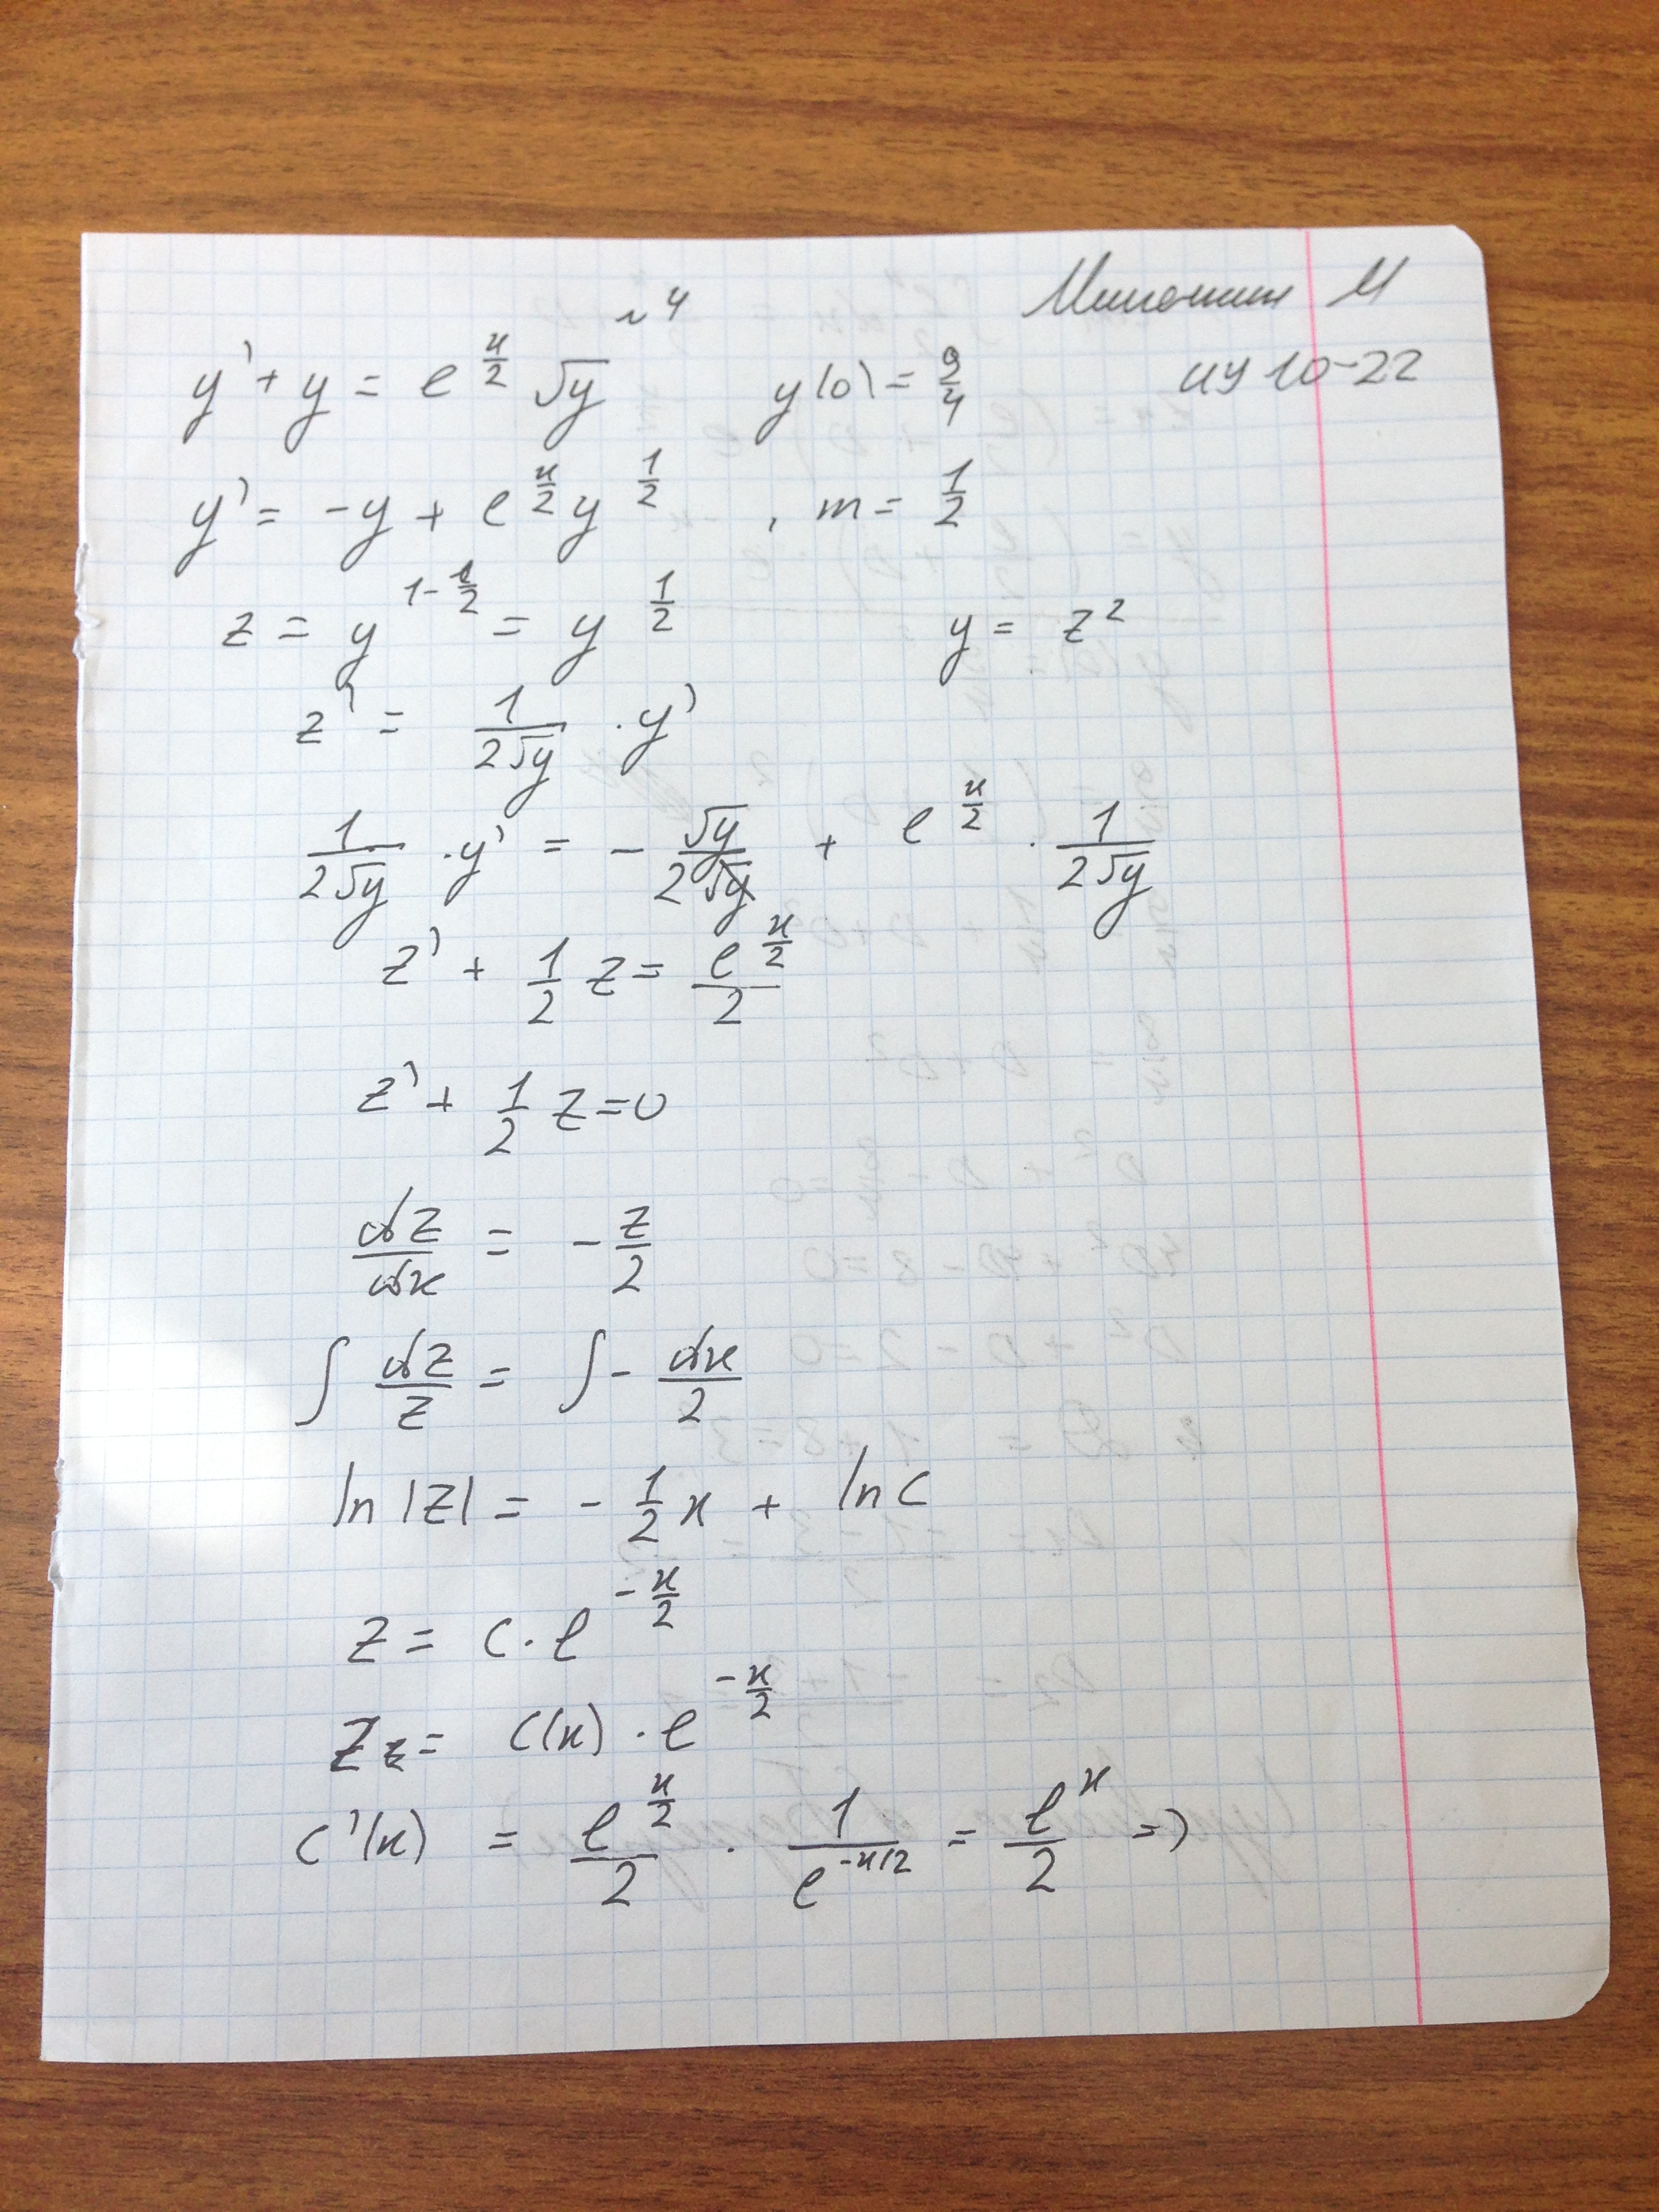 №4
Милонин М
y' + y = e^{x/2} √y    y(0) = 9/4    ИУ10-22
y' = -y + e^{x/2} y^{1/2} , m = 1/2
z = y^{1-1/2} = y^{1/2}    y = z^2
z' = 1/(2√y) · y'
1/(2√y) · y' = - √y/(2√y) + e^{x/2} · 1/(2√y)
z' + 1/2 z = e^{x/2}/2
z' + 1/2 z = 0
dz/dx = - z/2
∫ dz/z = ∫ - dx/2
ln |z| = - 1/2 x + ln C
z = C · e^{-x/2}
z = C(x) · e^{-x/2}
C'(x) = e^{x/2}/2 · 1/e^{-x/2} = e^x/2 =>